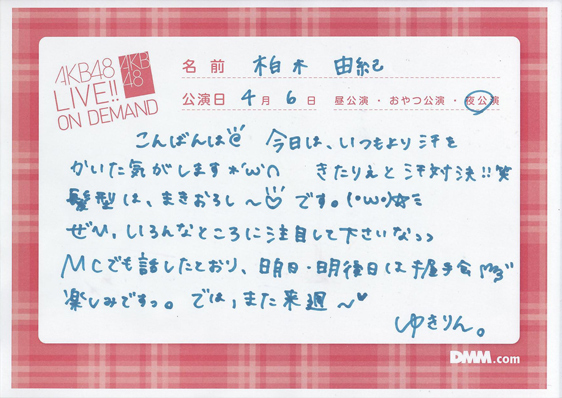 AKB48
LIVE!!
ON DEMAND
AKB
48
名前 柏木 由紀
公演日 4月6日 昼公演・おやつ公演・夜公演
こんばんは 今日は、いつもより汗を
かいた気がします*'ω'∩ きたりえと汗対決!!笑
髪型は、まきおろし〜♡ です。(・ω・)☆ミ
ぜひ、いろんなところに注目して下さいなっっ
MCでも話したとおり、明日・明後日は握手会
楽しみですっ。では、また来週〜♥
ゆきりん。
DMM.com